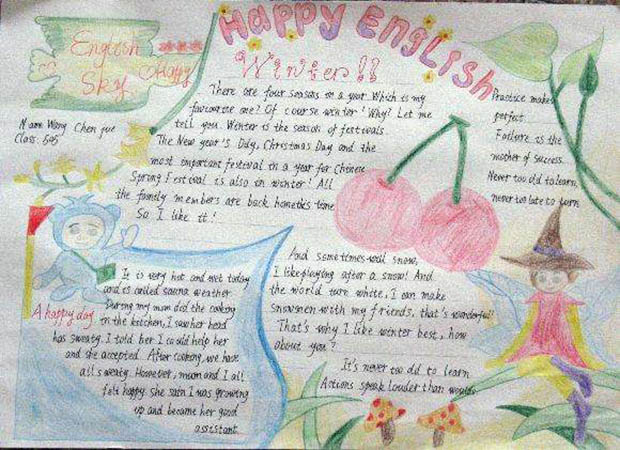 Happy English
English
Sky
Happy
Name Wang Chen yue
Class: 505
Winter!!
There are four seasons in a year. Which is my
favourite one? Of course winter! Why? Let me
tell you. Winter is the season of festivals
The New year's Day, Christmas Day and the
most important festival in a year for Chinese
Spring Festival is also in winter! All
the family members are back home this time
So I like it!
Practice makes
perfect.
Failure is the
mother of success.
Never too old to learn,
never too late to turn
And sometimes will snow,
I like playing after a snow! And
the world turn white, I can make
snowmen with my friends, that's wonderful!
That's why I like winter best, how
about you?
It's never too old to learn
Actions speak louder than words.
A happy day
It is very hot and wet today
and is called sauna weather
During my mum did the cooking
in the kitchen, I saw her head
has sweaty. I told her I could help her
and she accepted. After cooking, we have
all sweaty. However, mum and I all
felt happy. She sain I was growing
up and became her good
assistant.